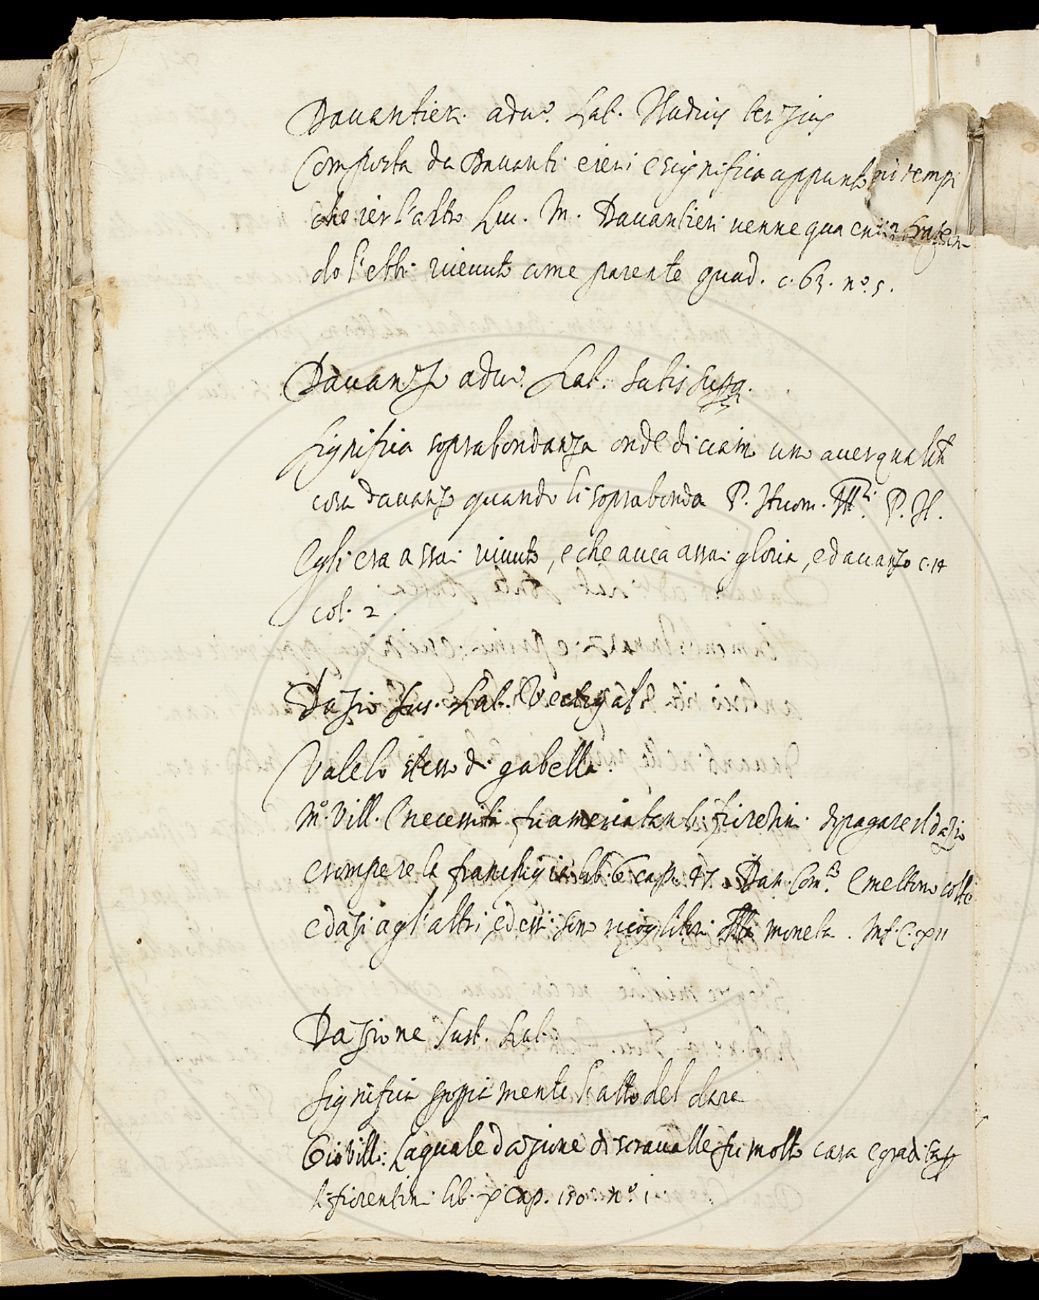 Dauantieri adu.o Lat. Nudius tertius
Composta da Dauanti e ieri e significa appunto
che ier l'altro Luc. M. Dauantieri uenne qua
do l'ebbi riceuuto come parente quad. c. 63. n.o 5.
Dauanzo adu.o Lat. Satis
significa soprabondanza onde diciamo uno auer qual
cosa dauanzo quando li soprabonda P.
Egli era assai uiuuto, e che auea assai gloria, e dauanzo c. 14
col. 2
Dazio sus. Lat. Vectigal
Vale lo stesso di gabella.
M. Vill. necessità fu a mercatanti fiorentini di pagare il dazio
e rompere la franchigia lib. 6 cap. 47. Dan. Com. E mettono colte
e dazi agl'altri, ed essi sono ricoglitori della moneta. Inf. C. XII
Dazione sust. Lat.
significa propiamente l'atto del dare
Gio Vill: La quale dazione di seraualle fu molto cara e gradita
a fiorentini lib. cap. 150 n.o 1